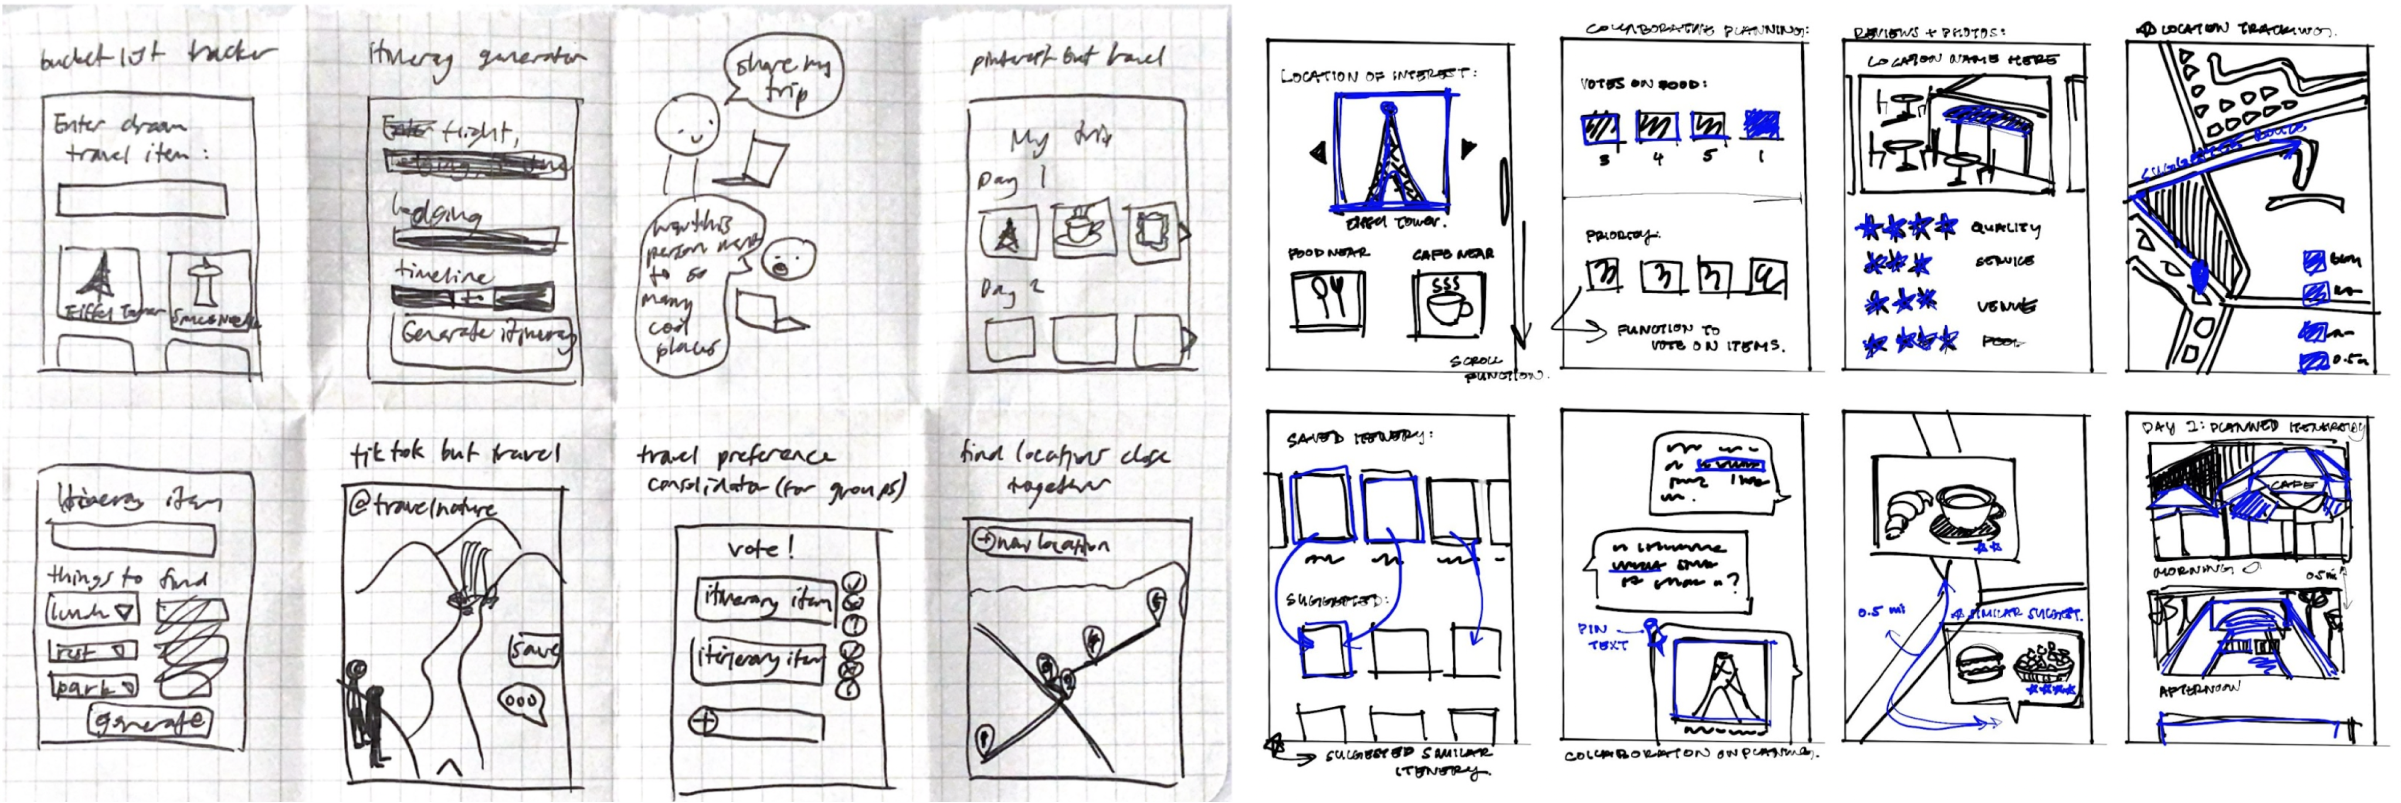 bucket list tracker
Enter dream
travel item:
Eiffel Tower
Space Needle
itinerary generator
flight,
lodging
timeline
Generate itinerary
share my
trip
how this
person went
to so
many
cool
places
pinterest but travel
My trip
Day 1
Day 2
Itinerary item
things to find
lunch
rest
park
generate
tiktok but travel
@travelnature
save
travel preference
consolidator (for groups)
vote!
itinerary item
itinerary item
find locations close
together
new location
LOCATION OF INTEREST:
EIFFEL TOWER.
FOOD NEAR
CAFE NEAR
SCROLL
FUNCTION.
COLLABORATIVE PLANNING:
VOTES ON FOOD:
3 4 5 1
PRIORITY:
FUNCTION TO
VOTE ON ITEMS.
REVIEWS + PHOTOS:
LOCATION NAME HERE
QUALITY
SERVICE
VENUE
LOCATION TRACKING.
SUGGESTED ROUTE
SAVED ITENERY:
SUGGESTED:
SUGGESTED SIMILAR
ITENERY.
PIN
TEXT
COLLABORATION ON PLANNING.
0.5 mi
SIMILAR SUGGEST.
DAY 1: PLANNED ITENERARY
CAFE
MORNING
0.5mi
AFTERNOON